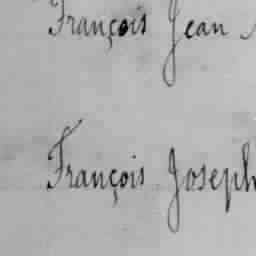 François Jean
François Joseph